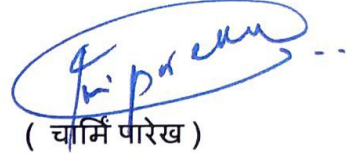 ( चार्मि पारेख )